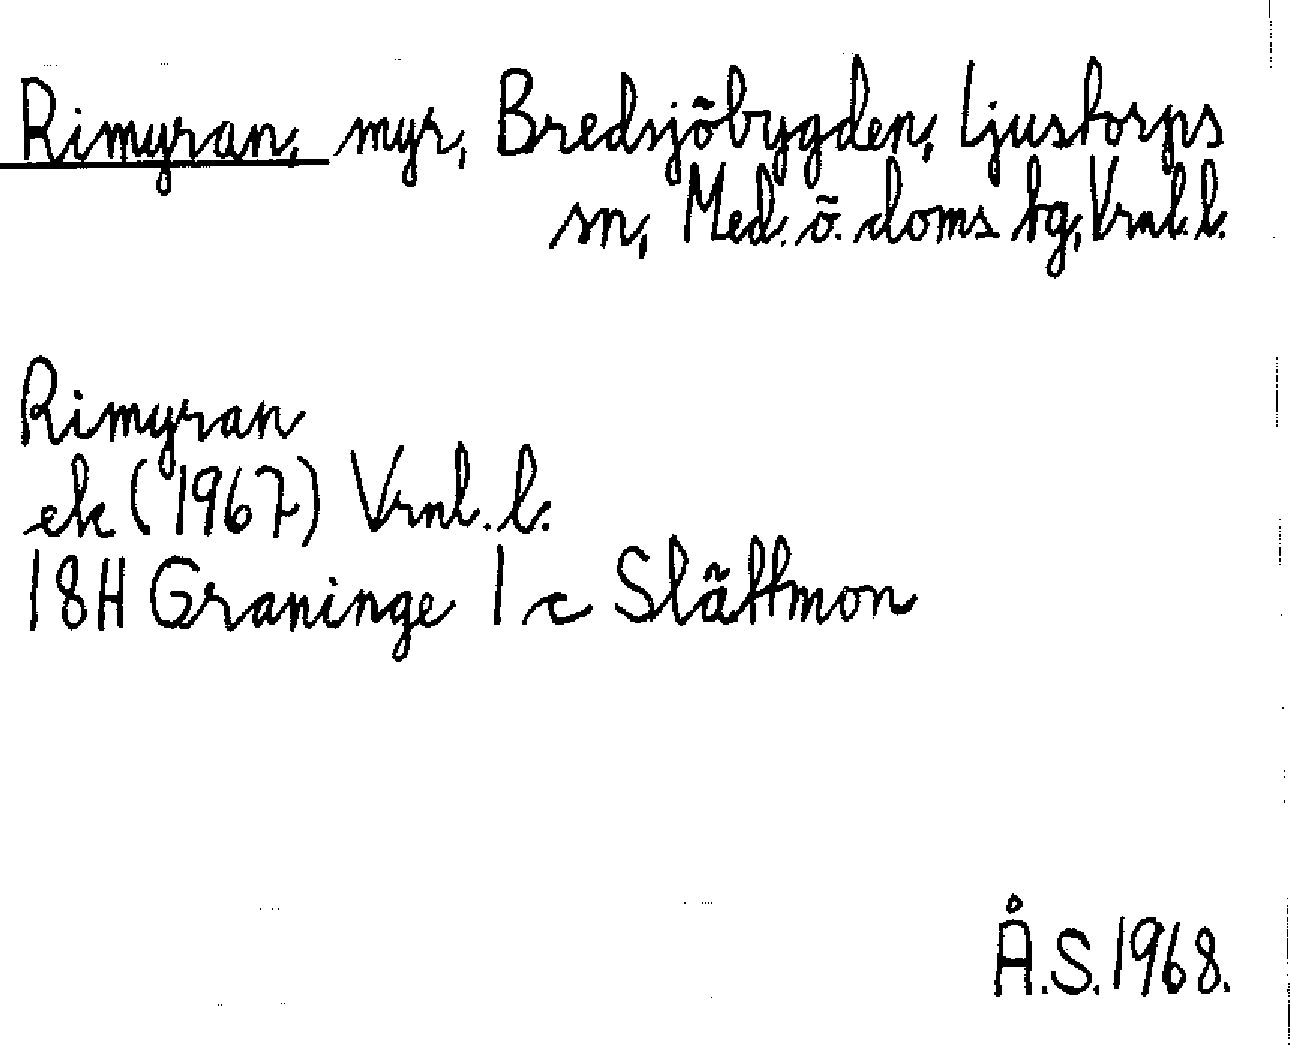 Rimyran, myr, Bredsjöbygden, Ljustorps
sn, Med. ö. doms tg, Vrnl. l.
Rimyran
ek (1967) Vrnl. l.
18H Graninge 1 c Slättmon
Å.S. 1968.